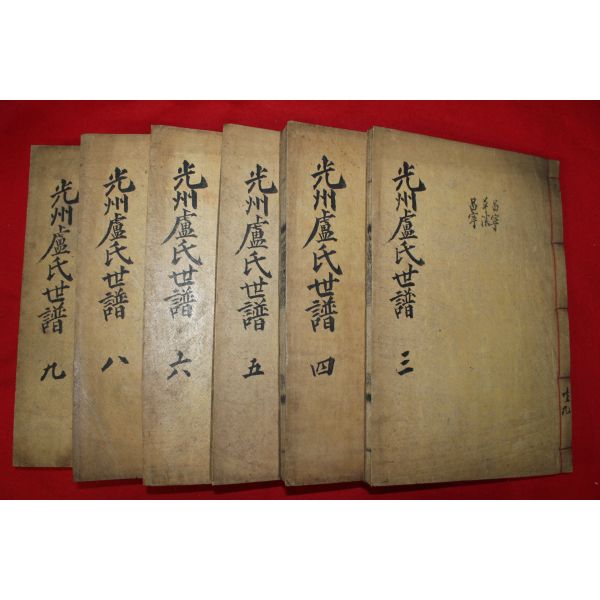 光州盧氏世譜 三
昌寧
昌寧
光州盧氏世譜 四
光州盧氏世譜 五
光州盧氏世譜 六
光州盧氏世譜 八
光州盧氏世譜 九